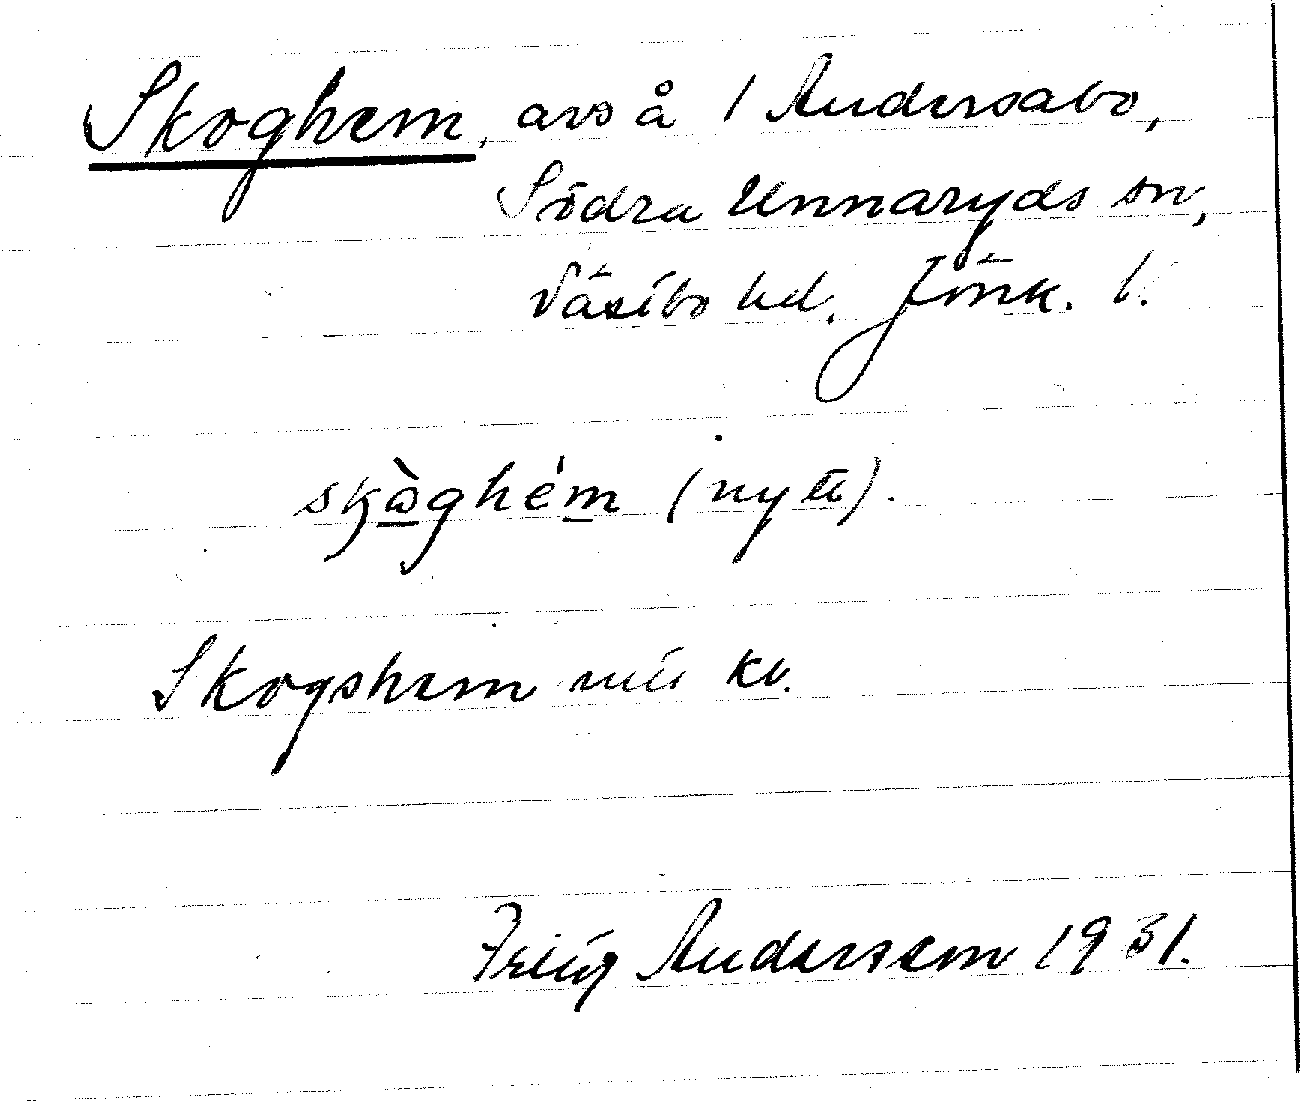 Skoghem, avs å 1 Andersabo,
Södra Unnaryds sn,
Västbo hd. Jönk. l.
skòghém (nytt).
Skogshem kv.
Andersson 1931.